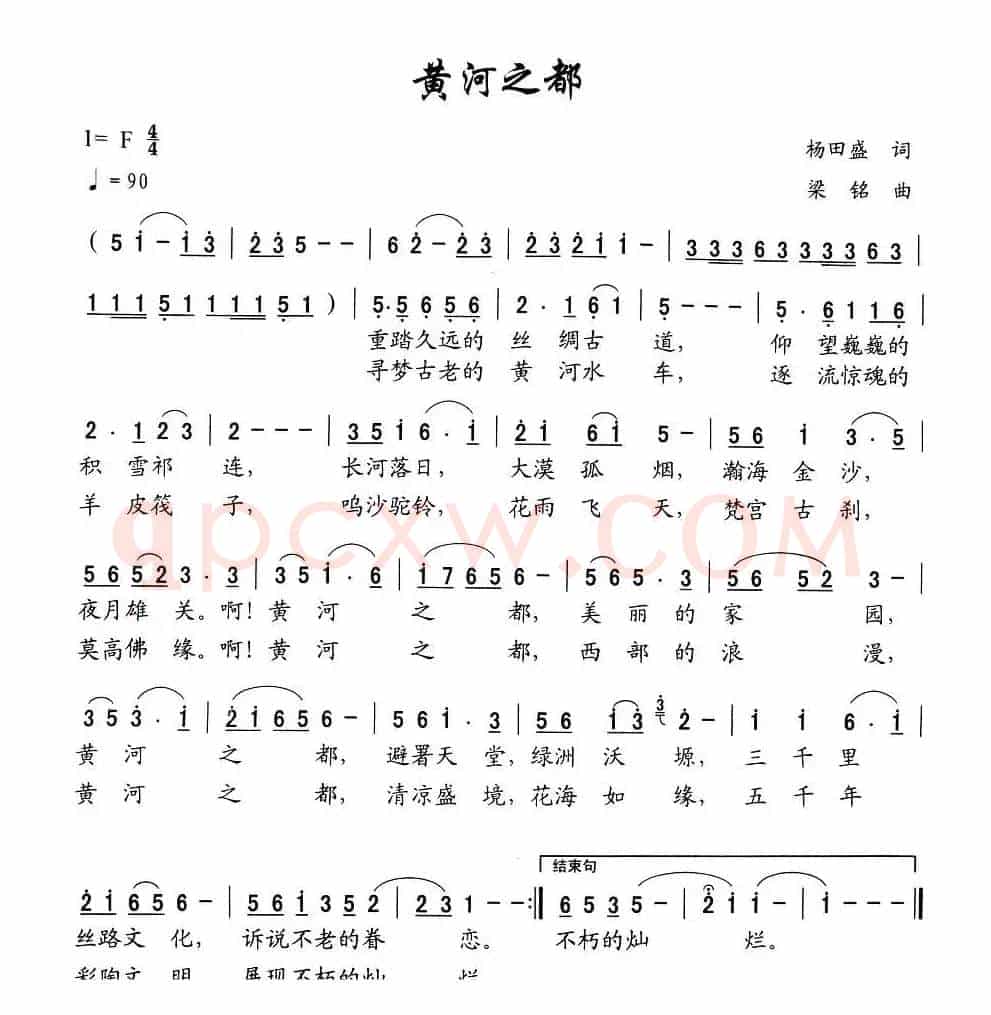 黄河之都
1= F 4/4
杨田盛 词
♩= 90
梁 铭 曲
( 5 i - i 3 | 2 3 5 - - | 6 2 - 2 3 | 2 3 2 i i - | 3 3 3 3 6 3 3 3 3 3 6 3 |
1 1 1 1 5 1 1 1 1 1 5 1 ) | 5 · 5 6 5 6 | 2 · 1 6 1 | 5 - - - | 5 · 6 1 1 6 |
重踏久远的 丝 绸古 道, 仰 望巍巍的
寻梦古老的 黄 河水 车, 逐 流惊魂的
2 · 1 2 3 | 2 - - - | 3 5 i 6 · i | 2 i 6 i 5 - | 5 6 i 3 · 5 |
积 雪祁 连, 长河落日, 大漠 孤 烟, 瀚海 金 沙,
羊 皮筏 子, 鸣沙驼铃, 花雨 飞 天, 梵宫 古 刹,
qpcxw.COM
5 6 5 2 3 · 3 | 3 5 i · 6 | i 7 6 5 6 - | 5 6 5 · 3 | 5 6 5 2 3 - |
夜月雄 关。啊! 黄 河 之 都, 美 丽 的 家 园,
莫高佛 缘。啊! 黄 河 之 都, 西 部 的 浪 漫,
3 5 3 · i | 2 i 6 5 6 - | 5 6 i · 3 | 5 6 i 3 3 2 - | i i 6 · i |
黄 河 之 都, 避暑天 堂, 绿洲 沃 塬, 三 千 里
黄 河 之 都, 清凉盛 境, 花海 如 缘, 五 千 年
结束句
2 i 6 5 6 - | 5 6 i 3 5 2 | 2 3 1 - - :‖ 6 5 3 5 - | 2 i i - | i - - - ‖
丝路文 化, 诉说不老的眷 恋。 不朽的灿 烂。
彩陶文 明, 展现不朽的灿 烂